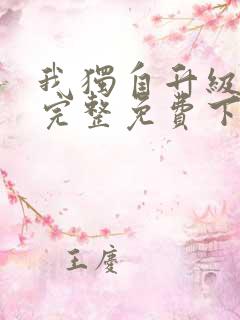 我獨自升級
完整免費下
王慶